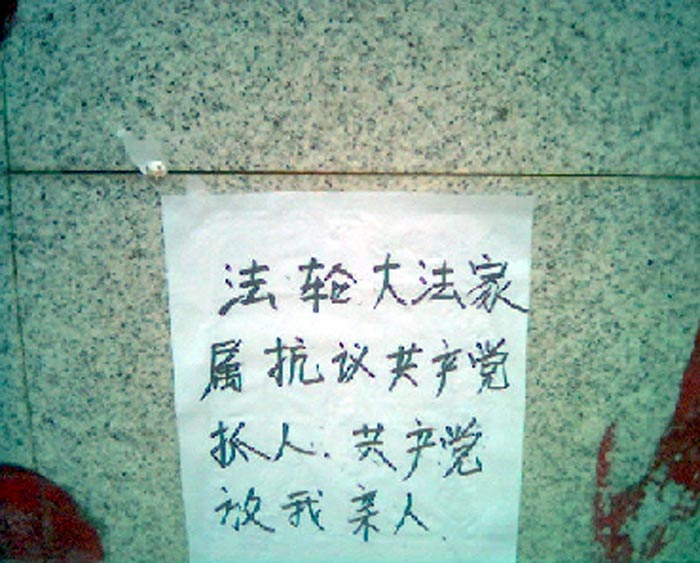 法轮大法家
属抗议共产党
抓人.共产党
放我亲人.